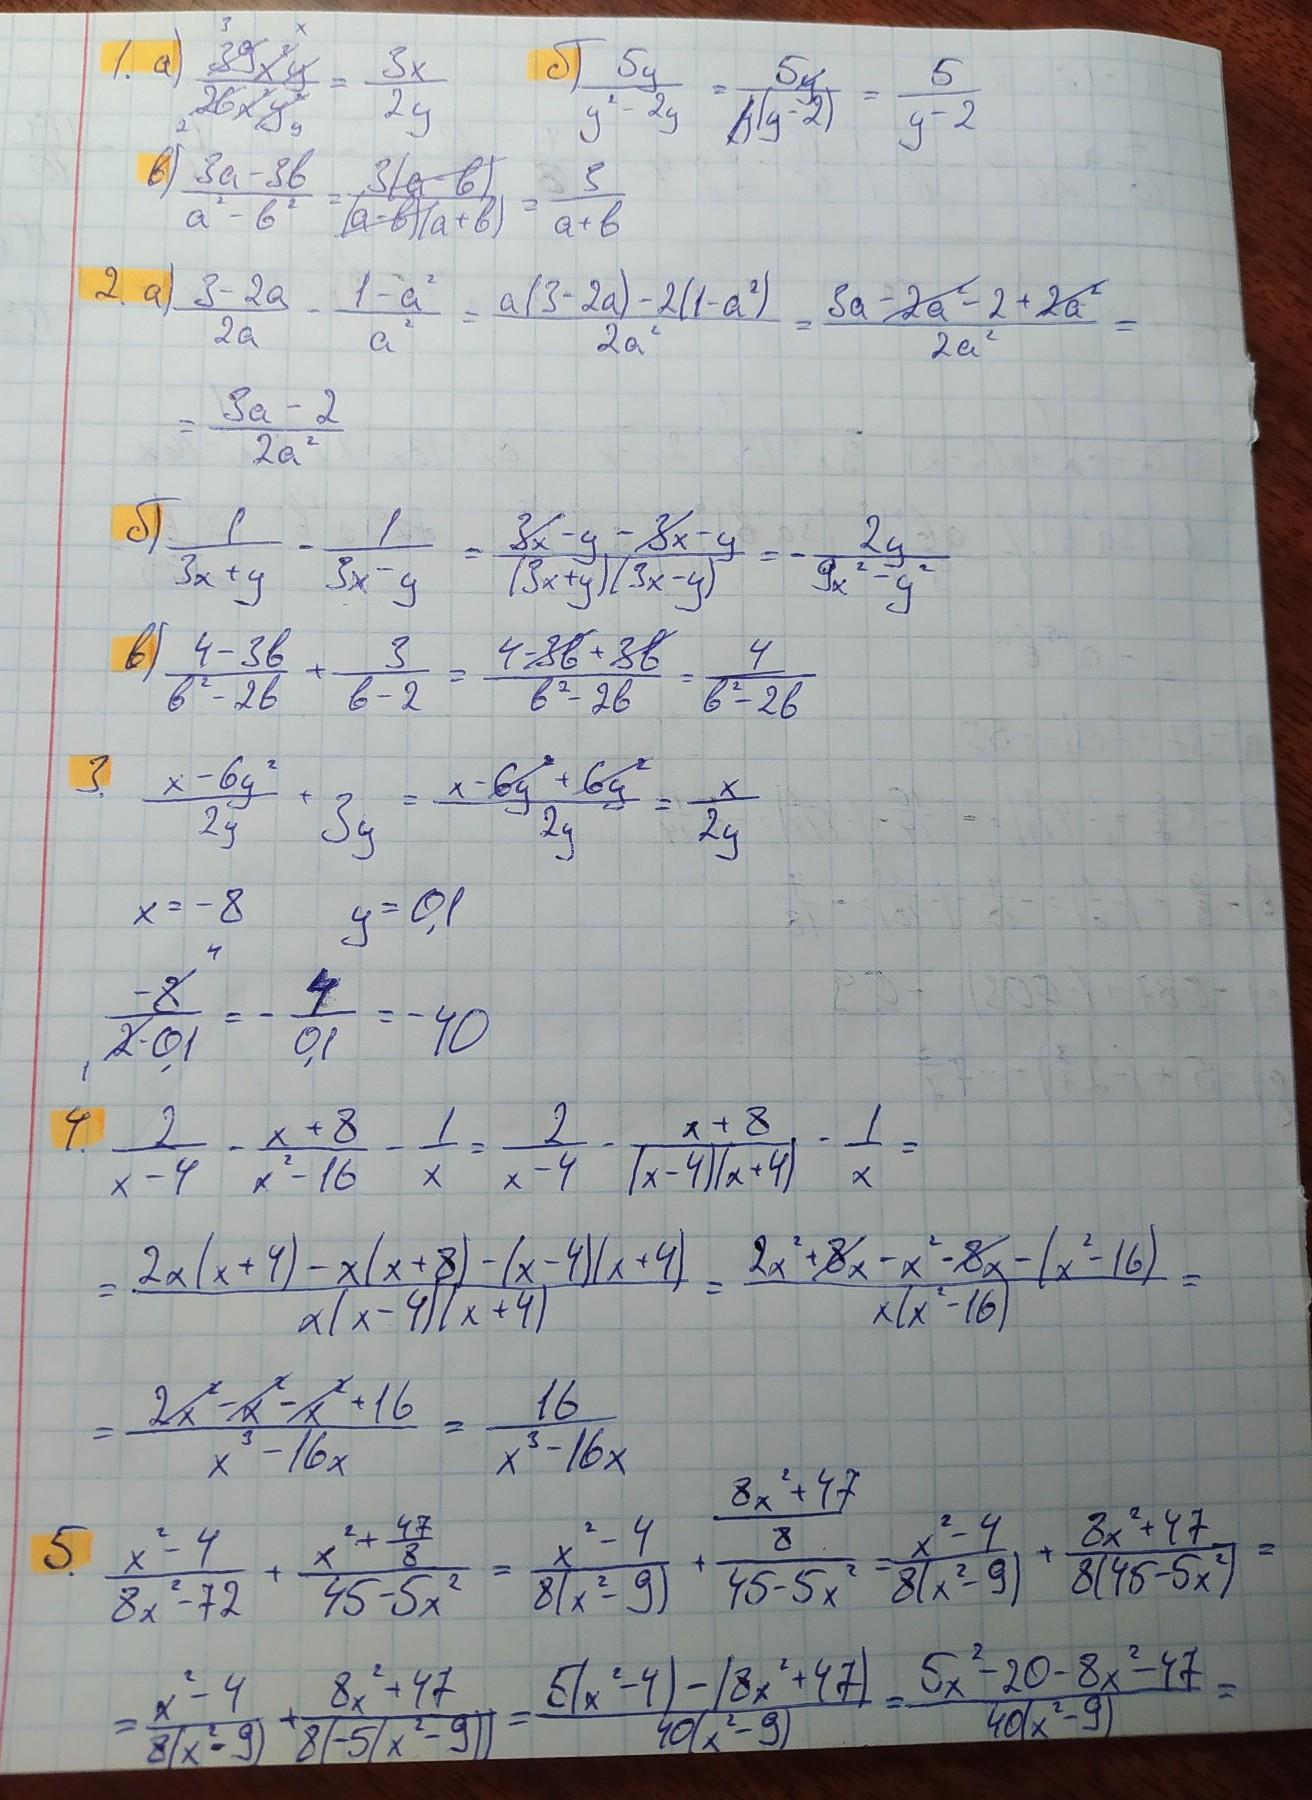 1. а) 39x³y / 26x²y² = 3x / 2y   б) 5y / (y² - 2y) = 5y / y(y-2) = 5 / (y-2)
в) (3a-3b) / (a² - b²) = 3(a-b) / (a-b)(a+b) = 3 / (a+b)
2. а) (3-2a) / 2a - (1-a²) / a² = (a(3-2a) - 2(1-a²)) / 2a² = (3a - 2a² - 2 + 2a²) / 2a² =
= (3a - 2) / 2a²
б) 1 / (3x+y) - 1 / (3x-y) = (3x - y - 3x - y) / (3x+y)(3x-y) = - 2y / (9x² - y²)
в) (4-3b) / (b² - 2b) + 3 / (b-2) = (4-3b+3b) / (b² - 2b) = 4 / (b² - 2b)
3. (x - 6y²) / 2y + 3y = (x - 6y² + 6y²) / 2y = x / 2y
x = -8   y = 0,1
-8 / 2·0,1 = - 4 / 0,1 = -40
4. 2 / (x-4) - (x+8) / (x² - 16) - 1 / x = 2 / (x-4) - (x+8) / (x-4)(x+4) - 1 / x =
= (2x(x+4) - x(x+8) - (x-4)(x+4)) / x(x-4)(x+4) = (2x² + 8x - x² - 8x - (x² - 16)) / x(x² - 16) =
= (2x² - x² - x² + 16) / (x³ - 16x) = 16 / (x³ - 16x)
5. (x² - 4) / (8x² - 72) + (x² + 47/8) / (45 - 5x²) = (x² - 4) / 8(x² - 9) + ((8x² + 47) / 8) / (45 - 5x²) = (x² - 4) / 8(x² - 9) + (8x² + 47) / 8(45 - 5x²) =
= (x² - 4) / 8(x² - 9) + (8x² + 47) / 8(-5(x² - 9)) = (5(x² - 4) - (8x² + 47)) / 40(x² - 9) = (5x² - 20 - 8x² - 47) / 40(x² - 9) =